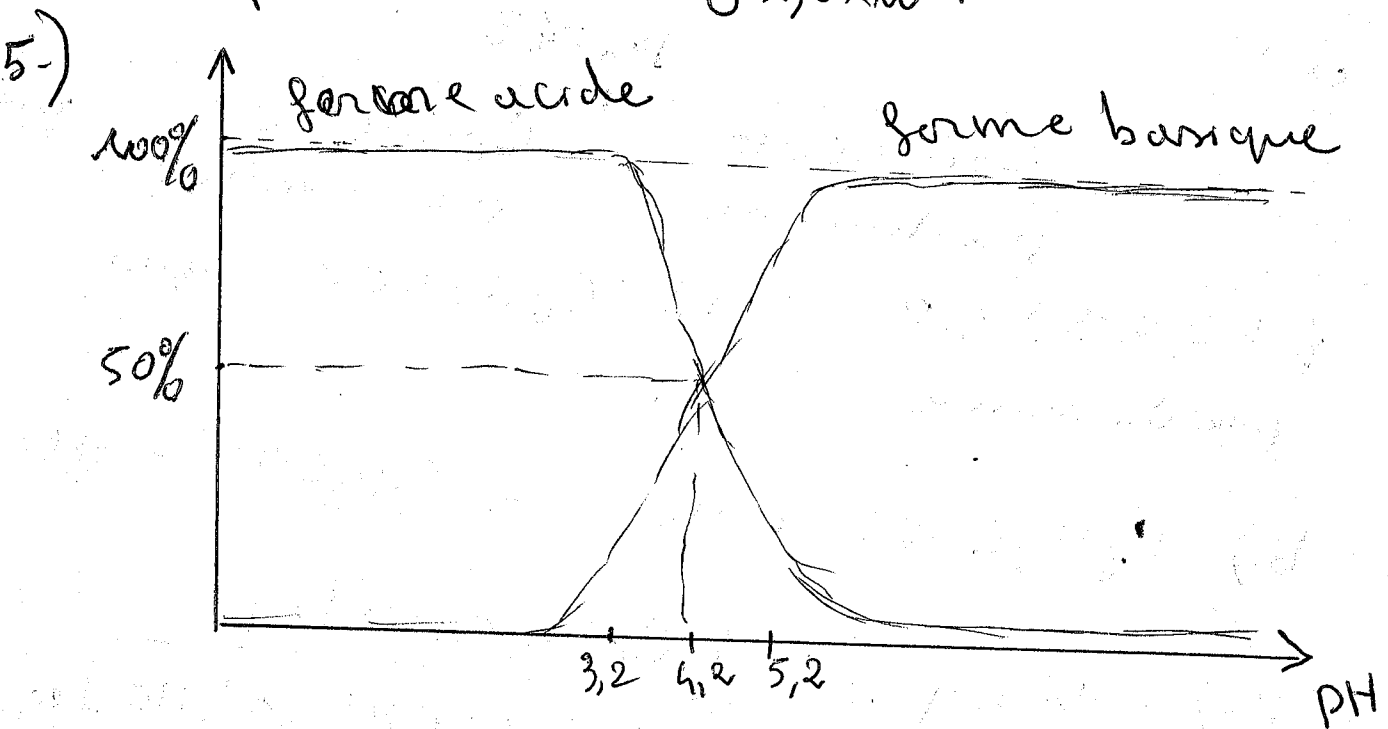 5-)
forme acide
forme basique
100%
50%
3,2 4,2 5,2
pH